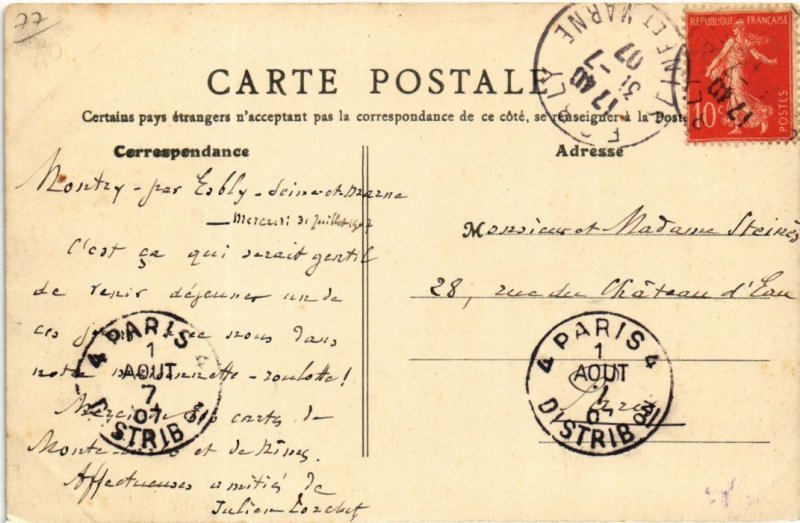 77
CARTE POSTALE
Certains pays étrangers n'acceptant pas la correspondance de ce côté, se renseigner à la Poste
Correspondance
Montry - par Esbly - Seine-et-Marne
Mercredi 31 Juillet 1907
C'est ça qui serait gentil
de venir déjeuner un de
ces jours nous dans
notre maisonnette-roulotte!
Merci cartes de
Monte et de Nîmes
Affectueuses amitiés de
Julien
Adresse
Monsieur et Madame Steinès
28, rue du Château d'Eau
Paris
RÉPUBLIQUE FRANÇAISE
10c
POSTES
ESBLY
SEINE ET MARNE
17 40
31 -7
07
4 PARIS 4
1
AOUT
7
07
DISTRIB
4 PARIS 4
1
AOUT
07
DISTRIB